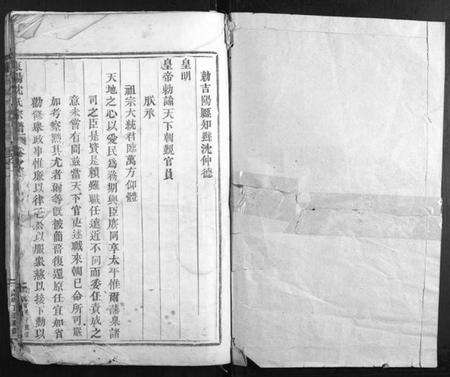 勅吉陽縣知縣沈仲德
皇明
皇帝勅諭天下朝覲官員
朕承
祖宗大統君臨萬方仰體
天地之心以愛民為務期與臣庶同享太平惟爾藩臬諸
司之臣是資是賴雖職任遠近不同而委任責成之
意未嘗有間茲當天下官吏述職來朝已命所司嚴
加考察黜其尤者爾等既被簡留復還原任宜如省
勸 庶政事惟廉以律己公以服眾慈以接下勤以